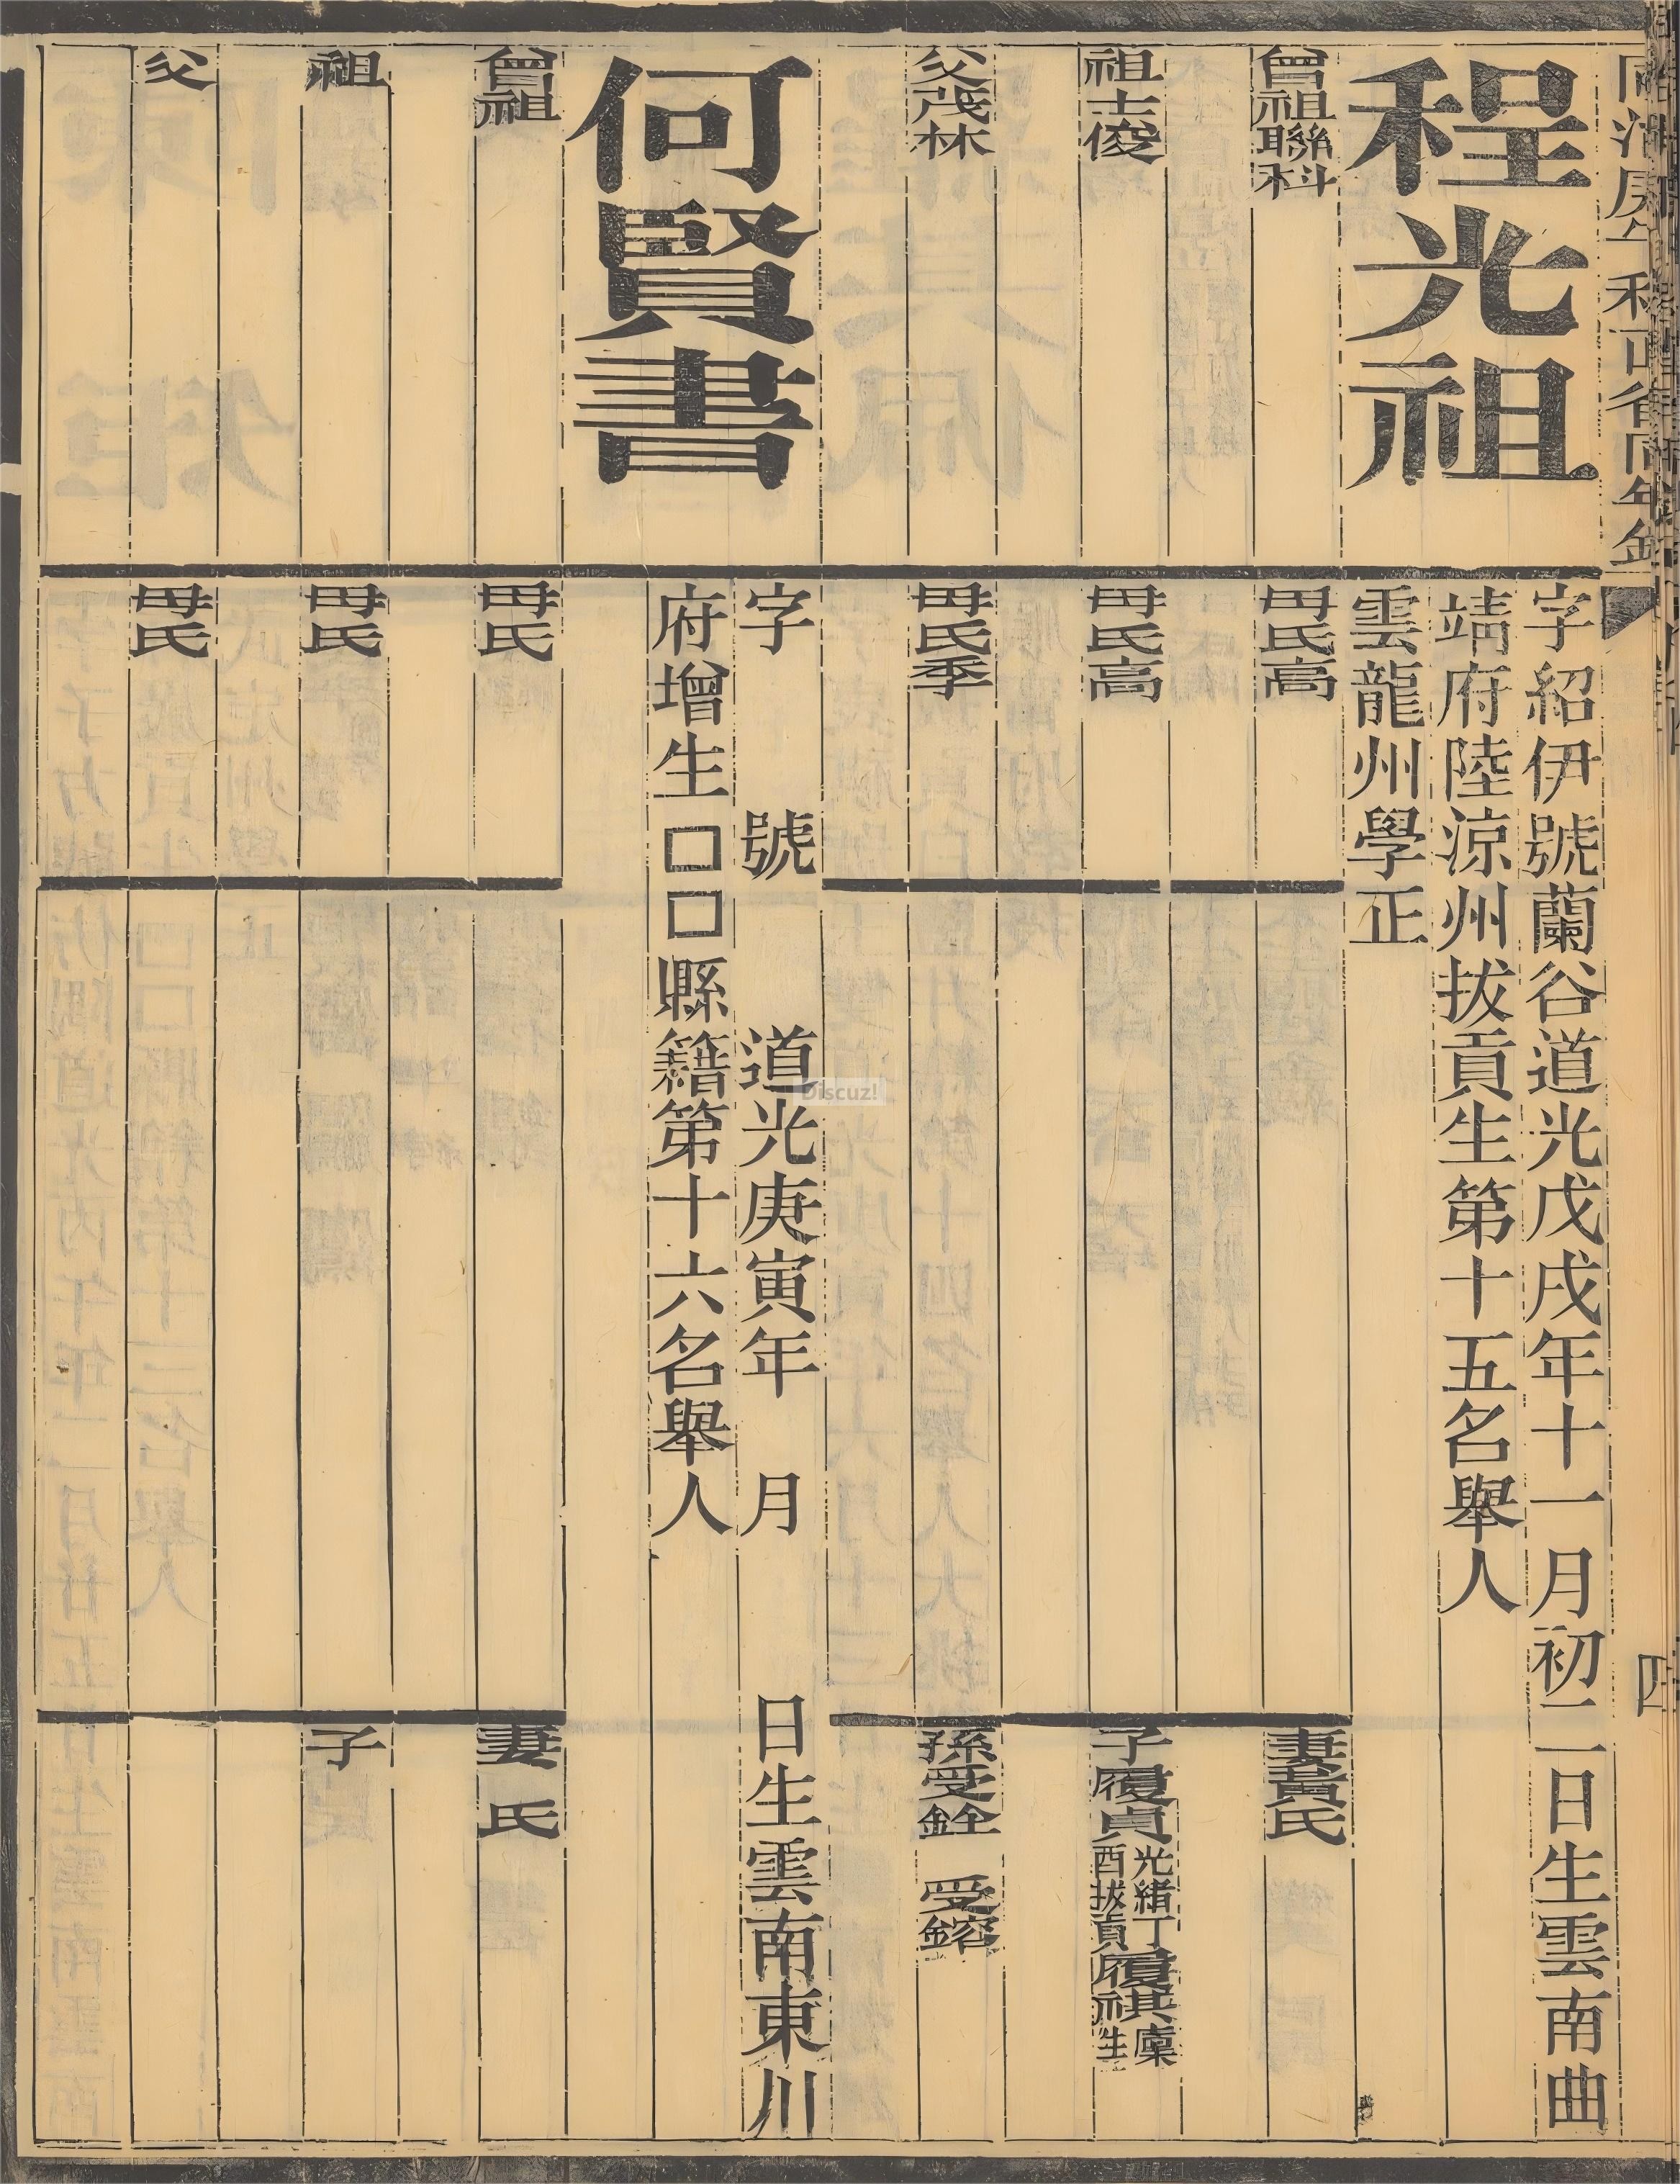 程光祖
字紹伊號蘭谷道光戊戌年十一月初二日生雲南曲
靖府陸涼州拔貢生第十五名舉人
雲龍州學正
曾祖聯科
母氏高
妻黃氏
祖士俊
母氏高
子履貞光緒丁酉拔貢履祺廩生
父茂林
母氏季
孫受銓 受鎔
何賢書
字 號 道光庚寅年 月 日生雲南東川
府增生□□縣籍第十六名舉人
曾祖
母氏
妻 氏
祖
母氏
子
父
母氏
四
Discuz!